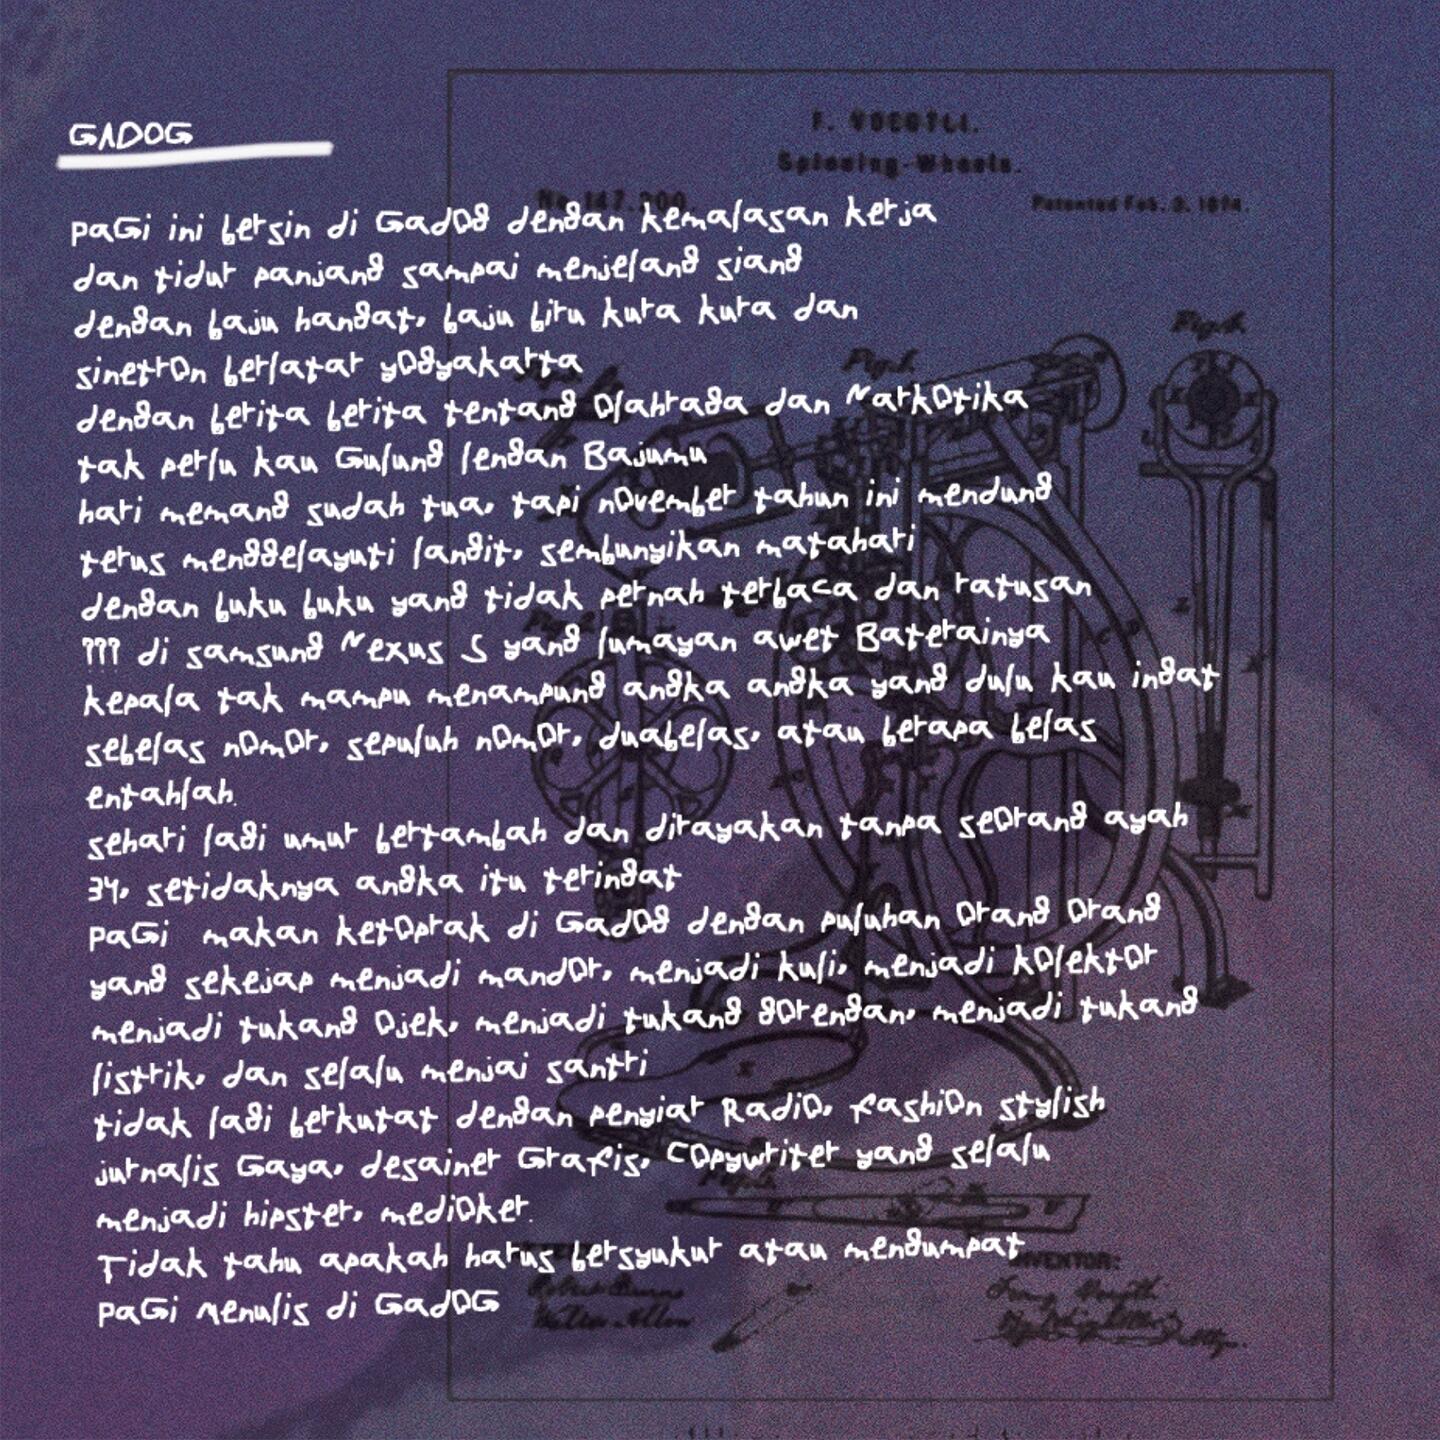 GADOG
F. VOEGTLI.
Spinning-Wheels.
No. 147,200.
Patented Feb. 3, 1874.
paGi ini bersin di GadOg dengan kemalasan kerja
dan tidur panjang sampai menjelang siang
dengan baju hangat, baju biru kura kura dan
sinetrOn berlatar yOgyakarta
dengan berita berita tentang Olahraga dan NarkOtika
tak perlu kau Gulung lengan Bajumu
hari memang sudah tua, tapi nOvember tahun ini mendung
terus menggelayuti langit, sembunyikan matahari
dengan buku buku yang tidak pernah terbaca dan ratusan
??? di samsung Nexus S yang lumayan awet Baterainya
kepala tak mampu menampung angka angka yang dulu kau ingat
sebelas nOmOr, sepuluh nOmOr, duabelas, atau berapa belas
entahlah.
sehari lagi umur bertambah dan dirayakan tanpa seOrang ayah
34, setidaknya angka itu teringat
paGi makan ketOprak di GadOg dengan puluhan Orang Orang
yang sekejap menjadi mandOr, menjadi kuli, menjadi kOlektOr
menjadi tukang Ojek, menjadi tukang gOrengan, menjadi tukang
listrik, dan selalu menjai santri
tidak lagi berkutat dengan penyiar RadiO, fashiOn stylish
jurnalis Gaya, desainer Grafis, COpywriter yang selalu
menjadi hipster, mediOker.
Tidak tahu apakah harus bersyukur atau mengumpat
paGi Menulis di GadOG
INVENTOR: